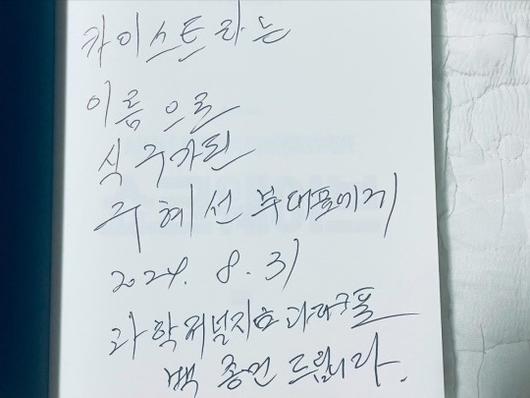 카이스트라는
이름으로
식구가된
구혜선 부대표에게
2024. 8. 31
과학저널지호 과대표
백 종민 드립니다.